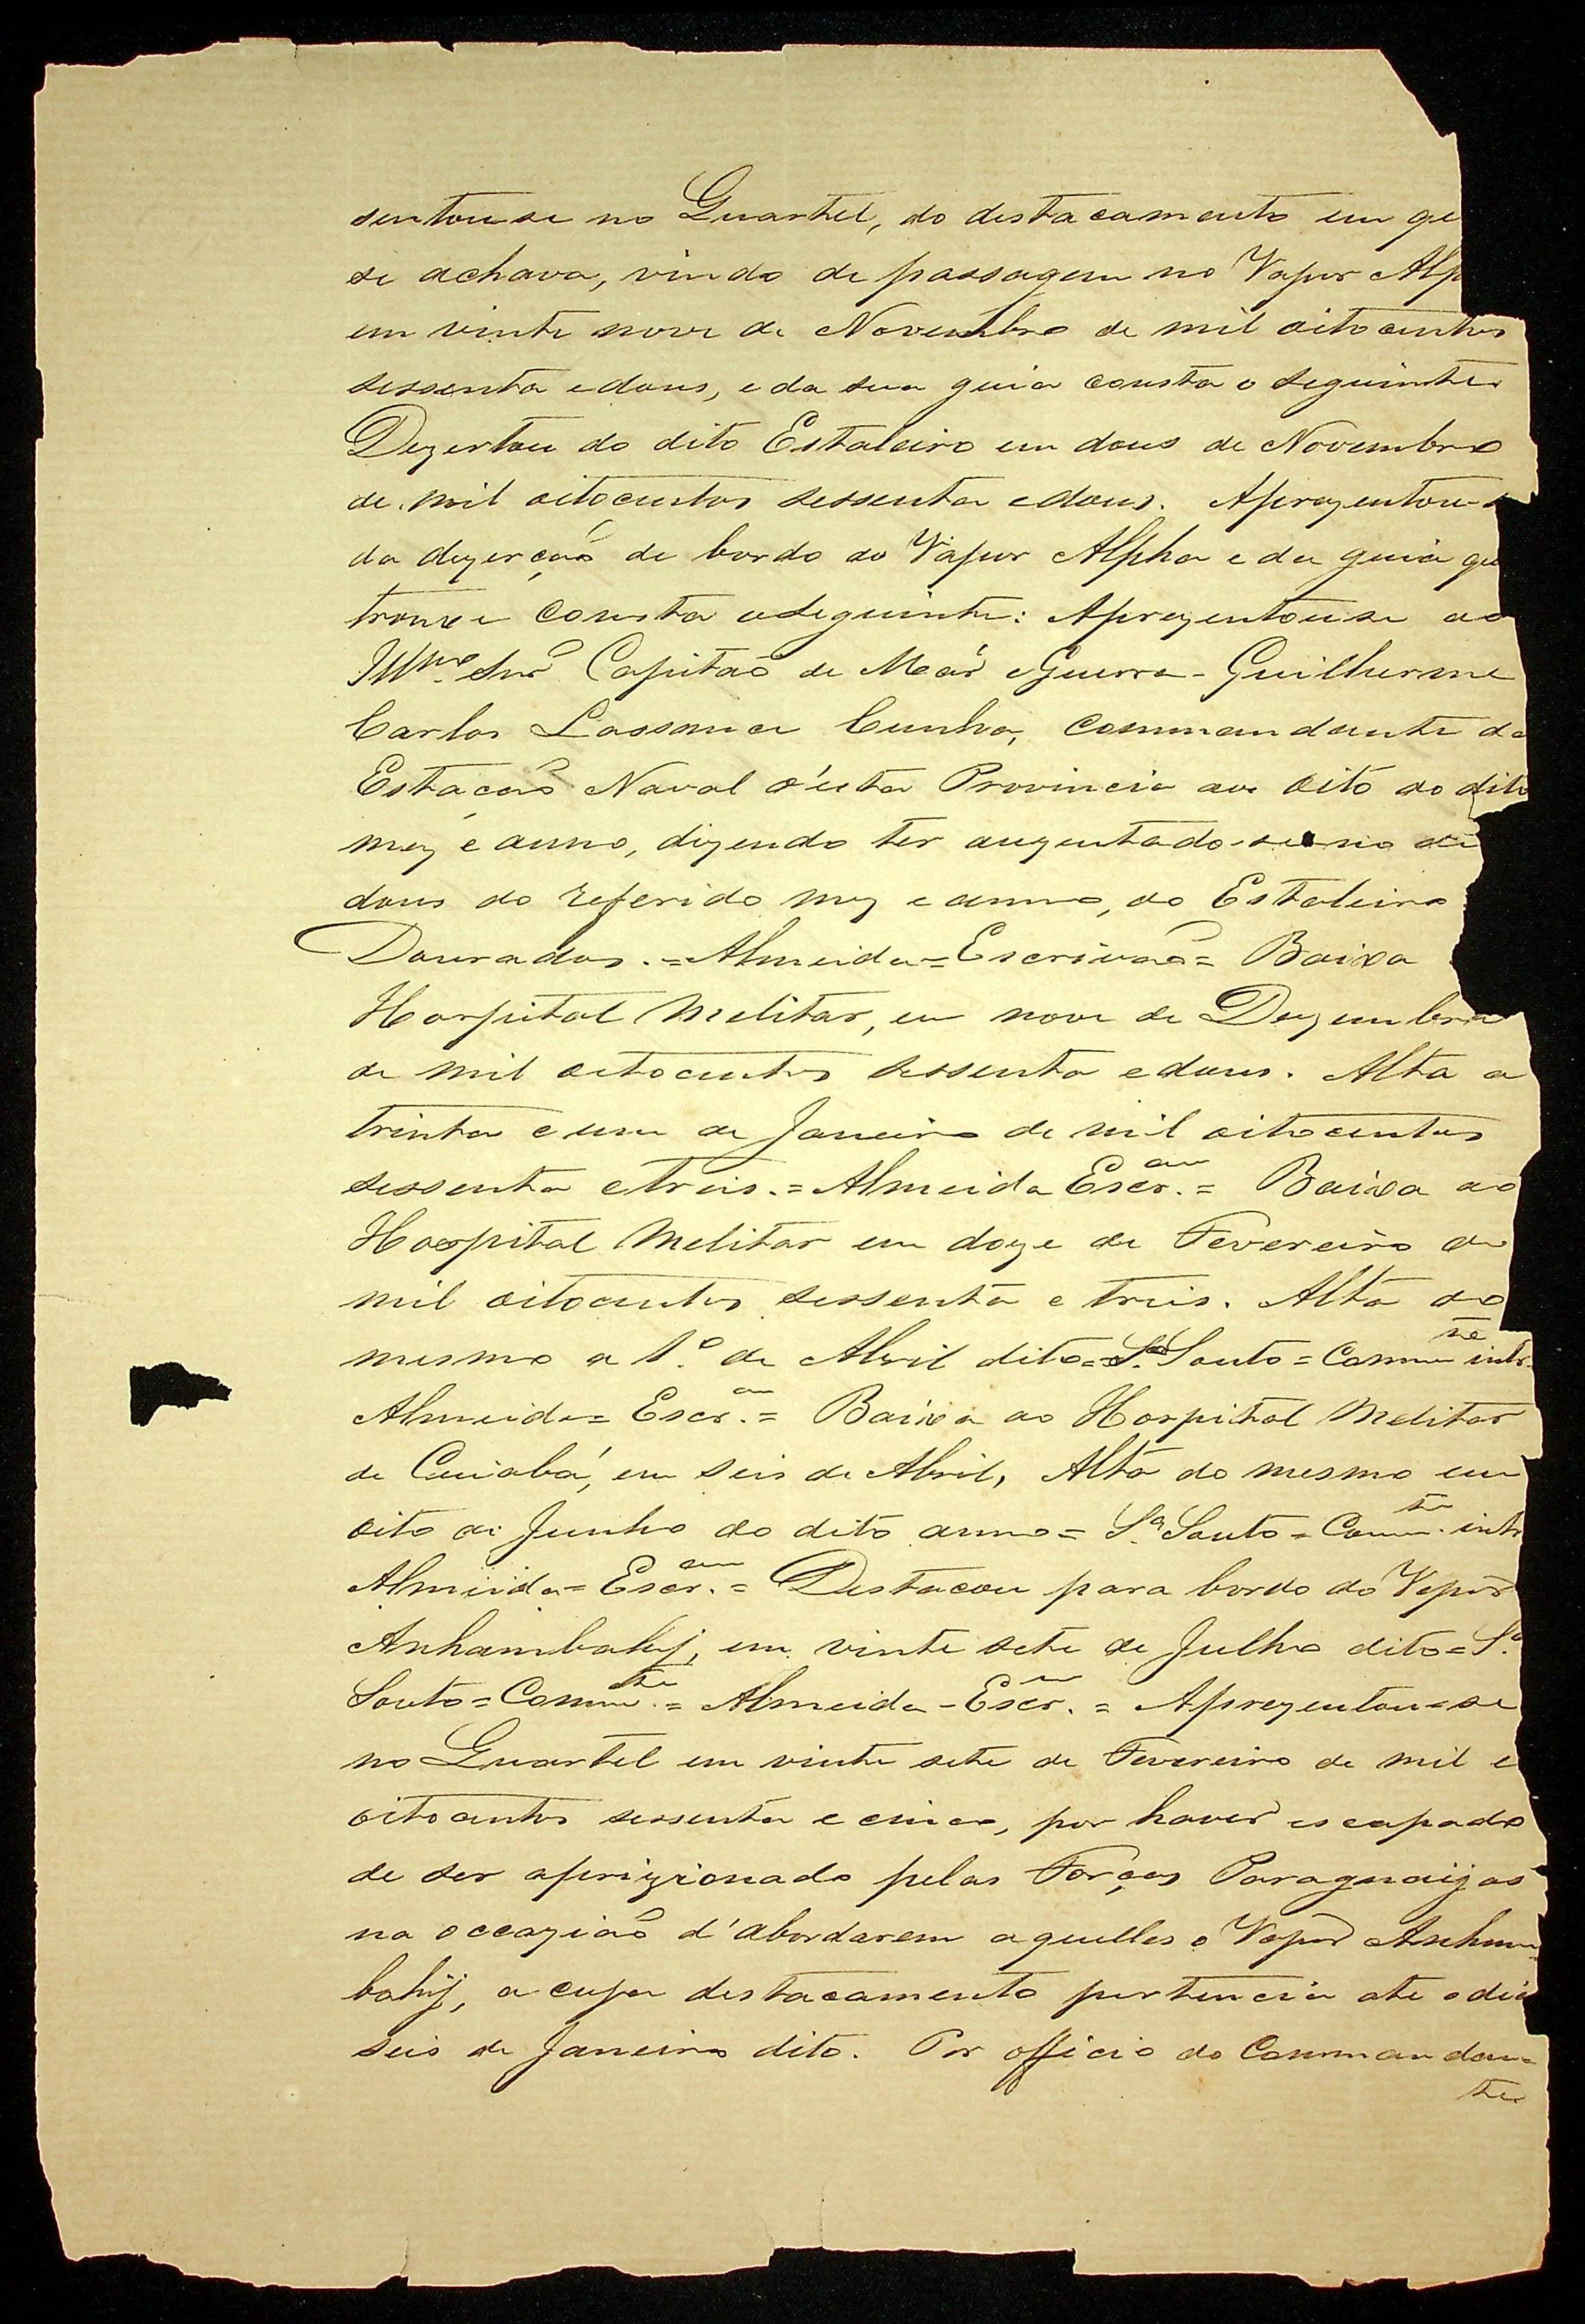 sentou se no Quartel, do destacamento em qe
se achava, vindo de passagem no Vapor Alp
em vinte nove de Novembro de mil oitocentos
sessenta e dous, e da sua guia consta o seguinte
Dezertou do dito Estaleiro em dous de Novembro
de mil oitocentos sessenta e dous. Aprezentou-s
da dezerçaõ de bordo do Vapor Alpha e da guia qe
trouxe consta o seguinte: Aprezentou se ao
Illmo. Snr Capitaõ de Mar e Guerra - Guilherme
Carlos Lassance Cunha, Commandante da
Estaçaõ Naval d'esta Provincia aos oito do dito
mez e anno, dizendo ter auzentado-se no di
dous do referido mez e anno, do Estaleiro
Dourados. = Almeida = Escrivaõ = Baixa
Hospital Melitar, em nove de Dezembro
de mil oitocentos sessenta e dous. Alta a
trinta e um de Janeiro de mil oitocentos
sessenta e treis. = Almeida Escr.am = Baixa ao
Hospital Melitar em doze de Fevereiro de
mil oitocentos sessenta e treis. Alta do
mesmo a 1º. de Abril dito = Sa. Souto = Comm.te intr.
Almeida = Escr.am = Baixa ao Hospital Melitar
de Cuiabá, em seis de Abril, Alta do mesmo em
oito de Junho do dito anno = Sa. Souto = Comm.te intr
Almeida = Escr.am = Destacou para bordo do Vapor
Anhambahy, em vinte sete de Julho dito = Sa.
Souto = Comm.te = Almeida - Escr.am = Aprezentou-se
no Quartel em vinte sete de Fevereiro de mil e
oitocentos sessenta e cinco, por haver escapado
de ser aprizionado pelas Forças Paraguaijas
na occaziaõ d'abordarem aquelles o Vapor Anham
bahij, a cujo destacamento pertencia ate o dia
seis de Janeiro dito. Por officio do Commandan-
te